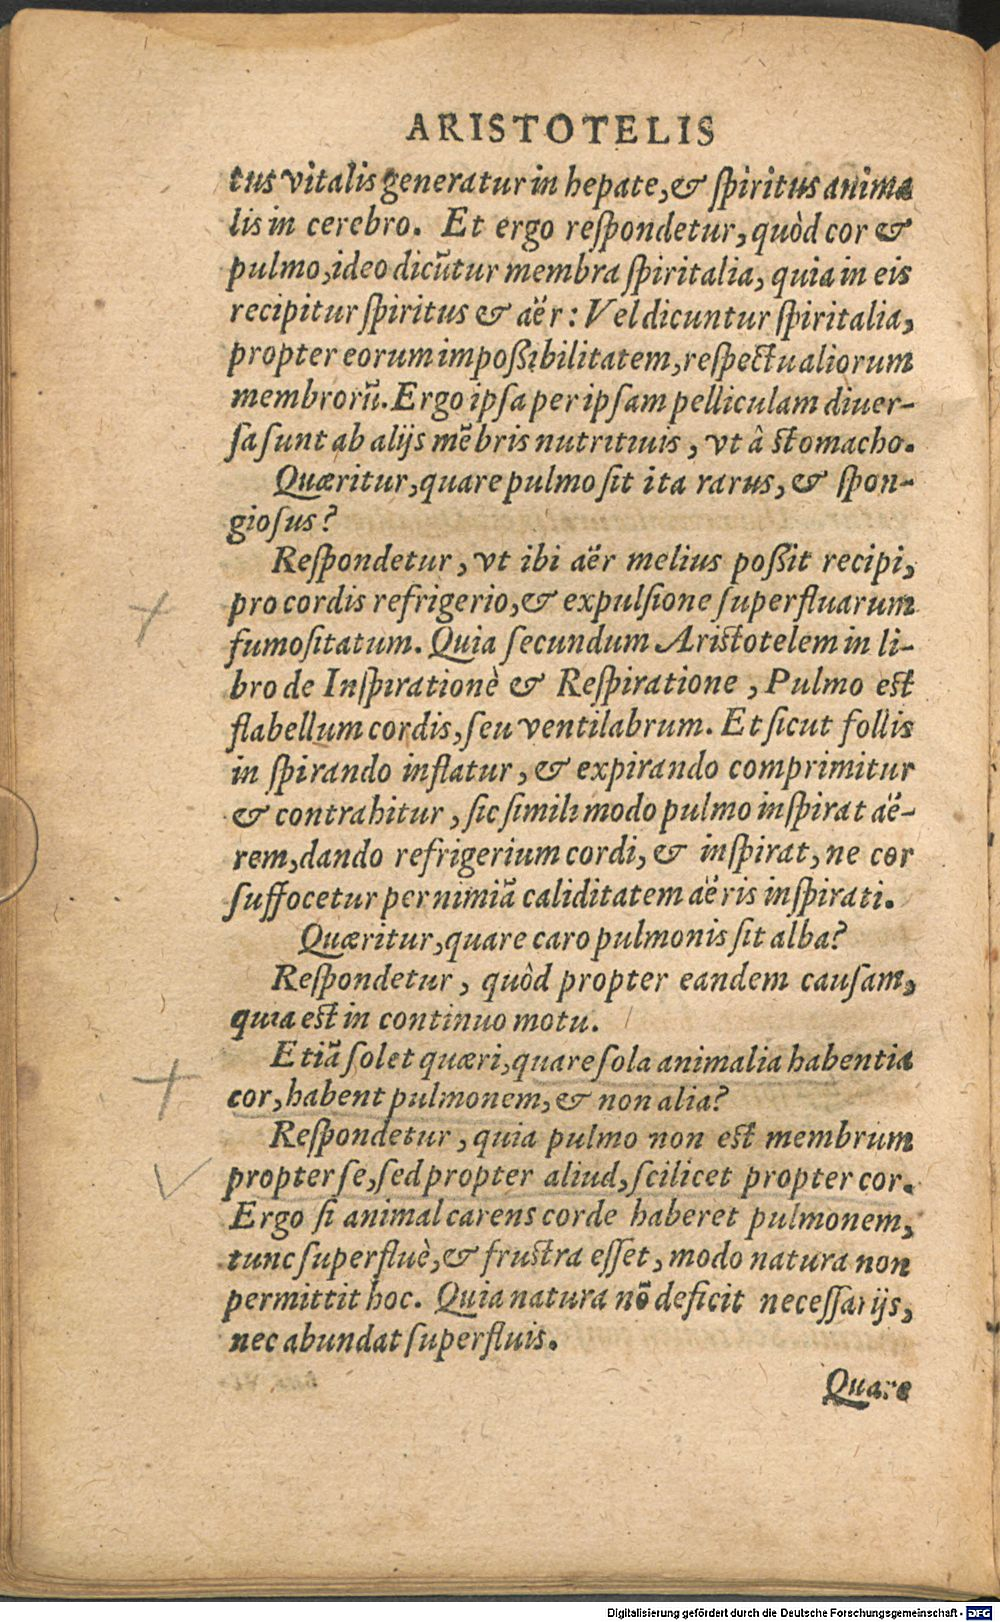 ARISTOTELIS
tus vitalis generatur in hepate, & ſpiritus anima
lis in cerebro. Et ergo reſpondetur, quòd cor &
pulmo, ideo dicũtur membra ſpiritalia, quia in eis
recipitur ſpiritus & aër: Vel dicuntur ſpiritalia,
propter eorum impoßibilitatem, reſpectu aliorum
membrorũ. Ergo ipſa per ipſam pelliculam diuer-
ſa ſunt ab alijs mẽbris nutritiuis, vt â ſtomacho.
Quæritur, quare pulmo ſit ita rarus, & ſpon-
gioſus?
Reſpondetur, vt ibi aër melius poßit recipi,
pro cordis refrigerio, & expulſione ſuperfluarum
fumoſitatum. Quia ſecundum Ariſtotelem in li-
bro de Inſpirationè & Reſpiratione, Pulmo eſt
flabellum cordis, ſeu ventilabrum. Et ſicut follis
in ſpirando inflatur, & expirando comprimitur
& contrahitur, ſic ſimili modo pulmo inſpirat aë-
rem, dando refrigerium cordi, & inſpirat, ne cor
ſuffocetur per nimiã caliditatem aëris inſpirati.
Quæritur, quare caro pulmonis ſit alba?
Reſpondetur, quòd propter eandem cauſam,
quia eſt in continuo motu.
Etiã ſolet quæri, quare ſola animalia habentia
cor, habent pulmonem, & non alia?
Reſpondetur, quia pulmo non eſt membrum
propter ſe, ſed propter aliud, ſcilicet propter cor.
Ergo ſi animal carens corde haberet pulmonem,
tunc ſuperfluè, & fruſtra eſſet, modo natura non
permittit hoc. Quia natura nõ deficit neceſſarijs,
nec abundat ſuperfluis.
Quare
Digitalisierung gefördert durch die Deutsche Forschungsgemeinschaft - DFG